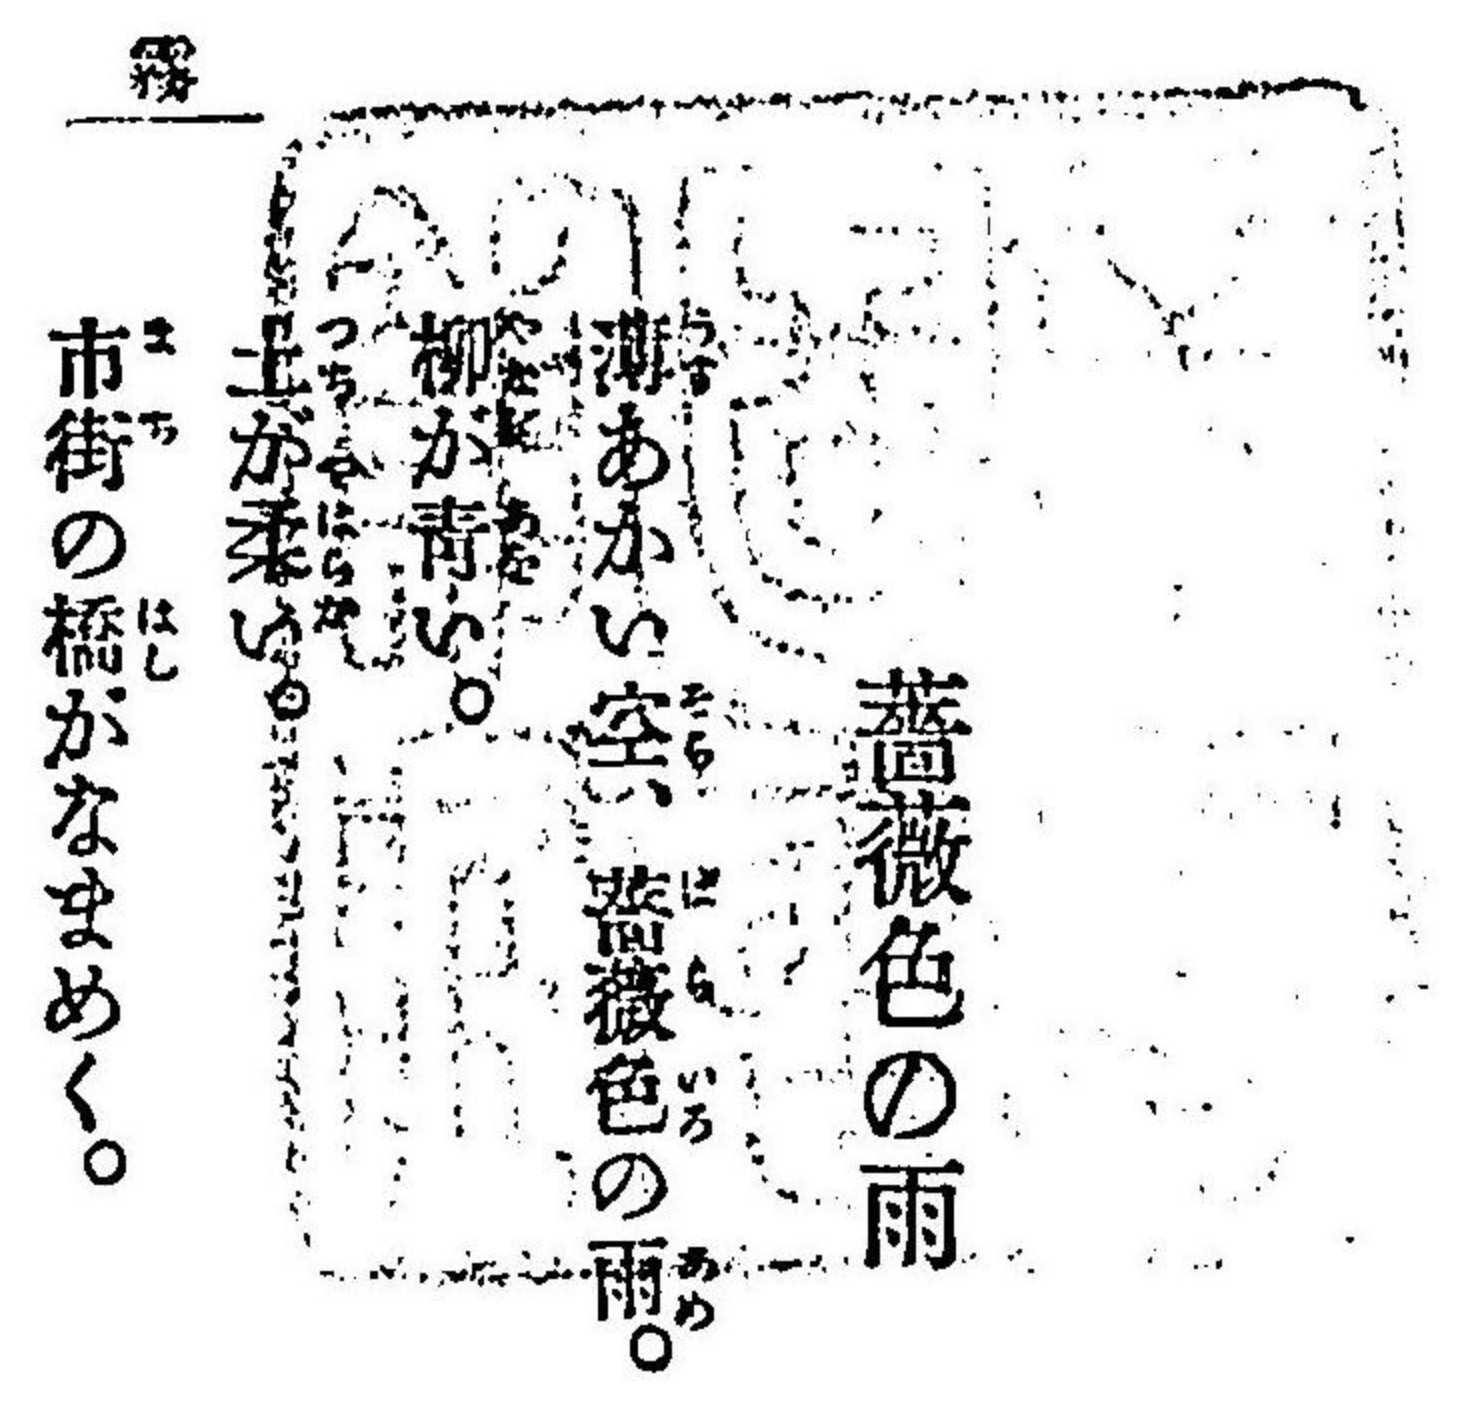 霧
薔薇色の雨
薄あかい空、薔薇色の雨。
柳が青い。
土が柔い。
市街の橋がなまめく。